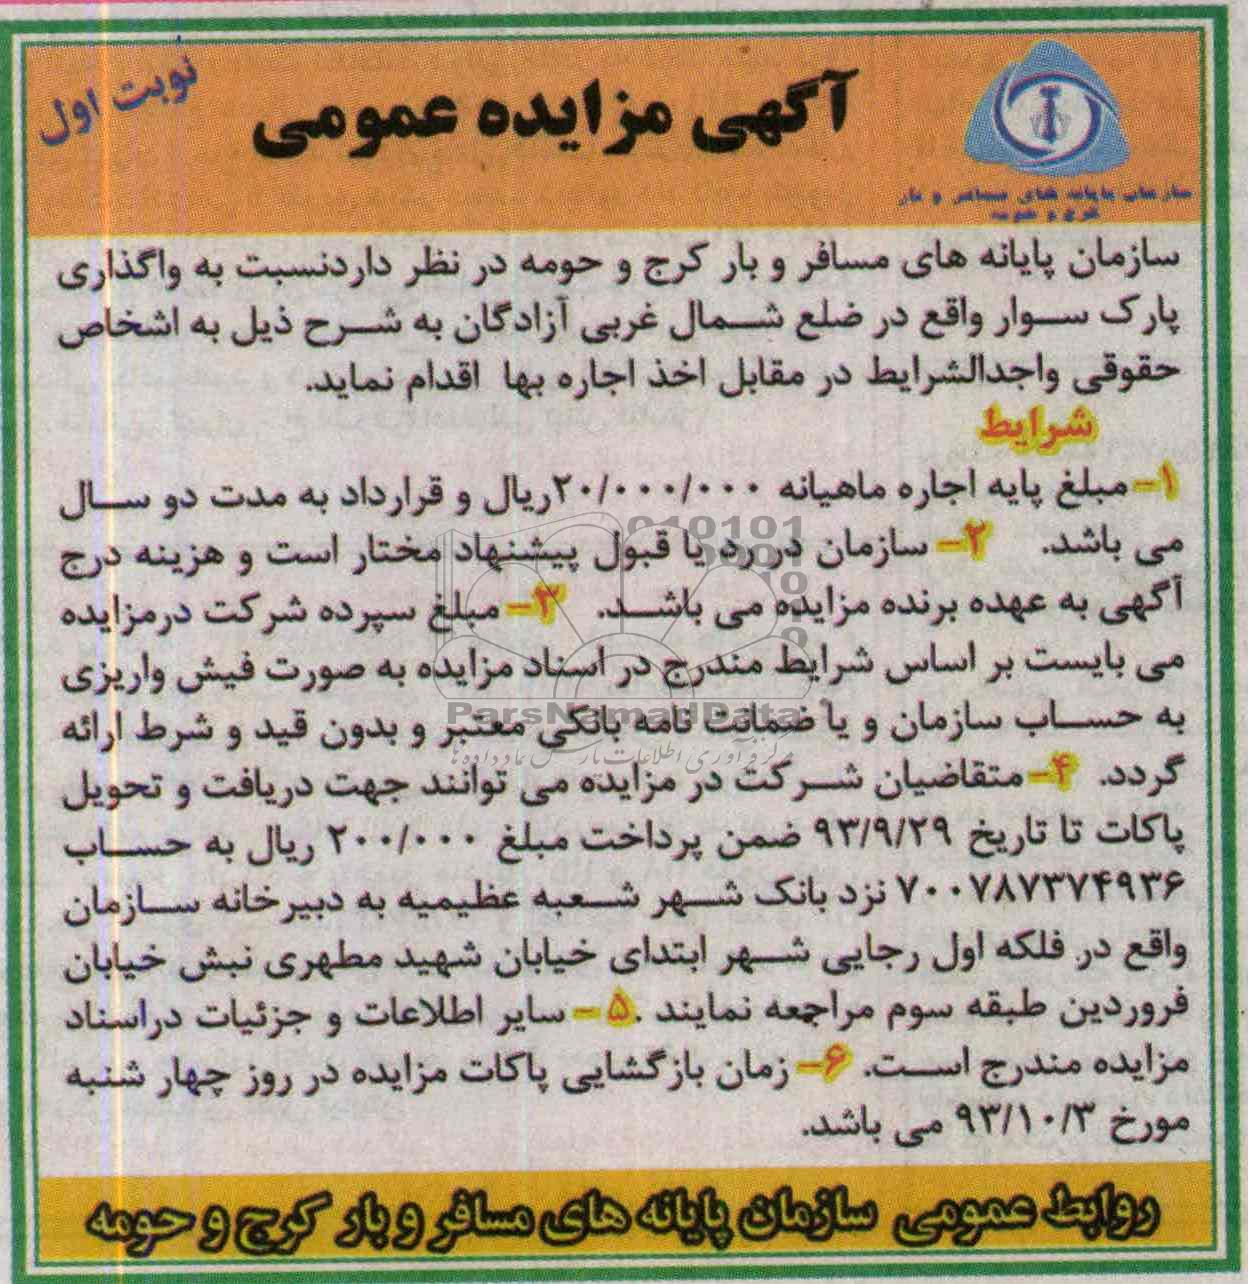 نوبت اول
آگهی مزایده عمومی
سازمان پایانه های مسافر و بار
کرج و حومه
سازمان پایانه های مسافر و بار کرج و حومه در نظر داردنسبت به واگذاری
پارک سوار واقع در ضلع شمال غربی آزادگان به شرح ذیل به اشخاص
حقوقی واجدالشرایط در مقابل اخذ اجاره بها اقدام نماید.
شرایط
۱- مبلغ پایه اجاره ماهیانه ۲۰/۰۰۰/۰۰۰ریال و قرارداد به مدت دو سال
می باشد. ۲- سازمان در رد یا قبول پیشنهاد مختار است و هزینه درج
آگهی به عهده برنده مزایده می باشد. ۳- مبلغ سپرده شرکت درمزایده
می بایست بر اساس شرایط مندرج در اسناد مزایده به صورت فیش واریزی
به حساب سازمان و یا ضمانت نامه بانکی معتبر و بدون قید و شرط ارائه
گردد. ۴- متقاضیان شرکت در مزایده می توانند جهت دریافت و تحویل
پاکات تا تاریخ ۹۳/۹/۲۹ ضمن پرداخت مبلغ ۲۰۰/۰۰۰ ریال به حساب
۷۰۰۷۸۷۳۷۴۹۳۶ نزد بانک شهر شعبه عظیمیه به دبیرخانه سازمان
واقع در فلکه اول رجایی شهر ابتدای خیابان شهید مطهری نبش خیابان
فروردین طبقه سوم مراجعه نمایند .۵- سایر اطلاعات و جزئیات دراسناد
مزایده مندرج است. ۶- زمان بازگشایی پاکات مزایده در روز چهار شنبه
مورخ ۹۳/۱۰/۳ می باشد.
روابط عمومی سازمان پایانه های مسافر و بار کرج و حومه
ParsNamadData
مرکز فرآوری اطلاعات پارس نماد داده ها